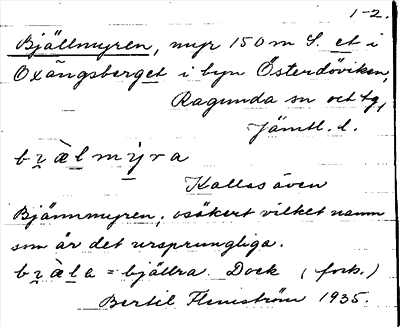 1-2.
Bjällmyren, myr 150 m S. et i
Oxängsberget i byn Österdöviken,
Ragunda sn och tg,
Jämtl. l.
bi̯àlmy̆ra
Kallas även
Bjännmyren; osäkert vilket namn
som är det ursprungliga.
bi̯àla = bjällra. Dock (fork.)
Bertil Flemström 1935.